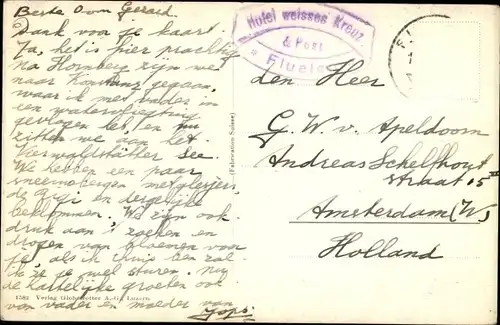 Beste Oom Gerard
Dank voor je kaart.
Ja, het is hier prachtig
Na Hornberg zijn we
naar Konstanz gegaan,
waar ik met vader in
een watervliegtuig
gevlogen heb, en nu
zitten we aan het
Vierwaldstätter See.
We hebben een paar
sneeuwbergen met gletsjers
de Rigi en dergelijke
beklommen. We zijn ook
druk aan 't zoeken en
drogen van bloemen voor
je, als ik thuis ben zal
ik ze je wel sturen. Nog
de hartelijke groeten ook
van vader en moeder van
Jops.
1582 Verlag Globetrotter A.-G., Luzern.
(Fabrication Suisse)
Hotel weisses Kreuz
& Post
* Fluelen
den Heer
G. W. v. Apeldoorn
Andreas Schelfhout
straat 15 III
Amsterdam (W.)
Holland